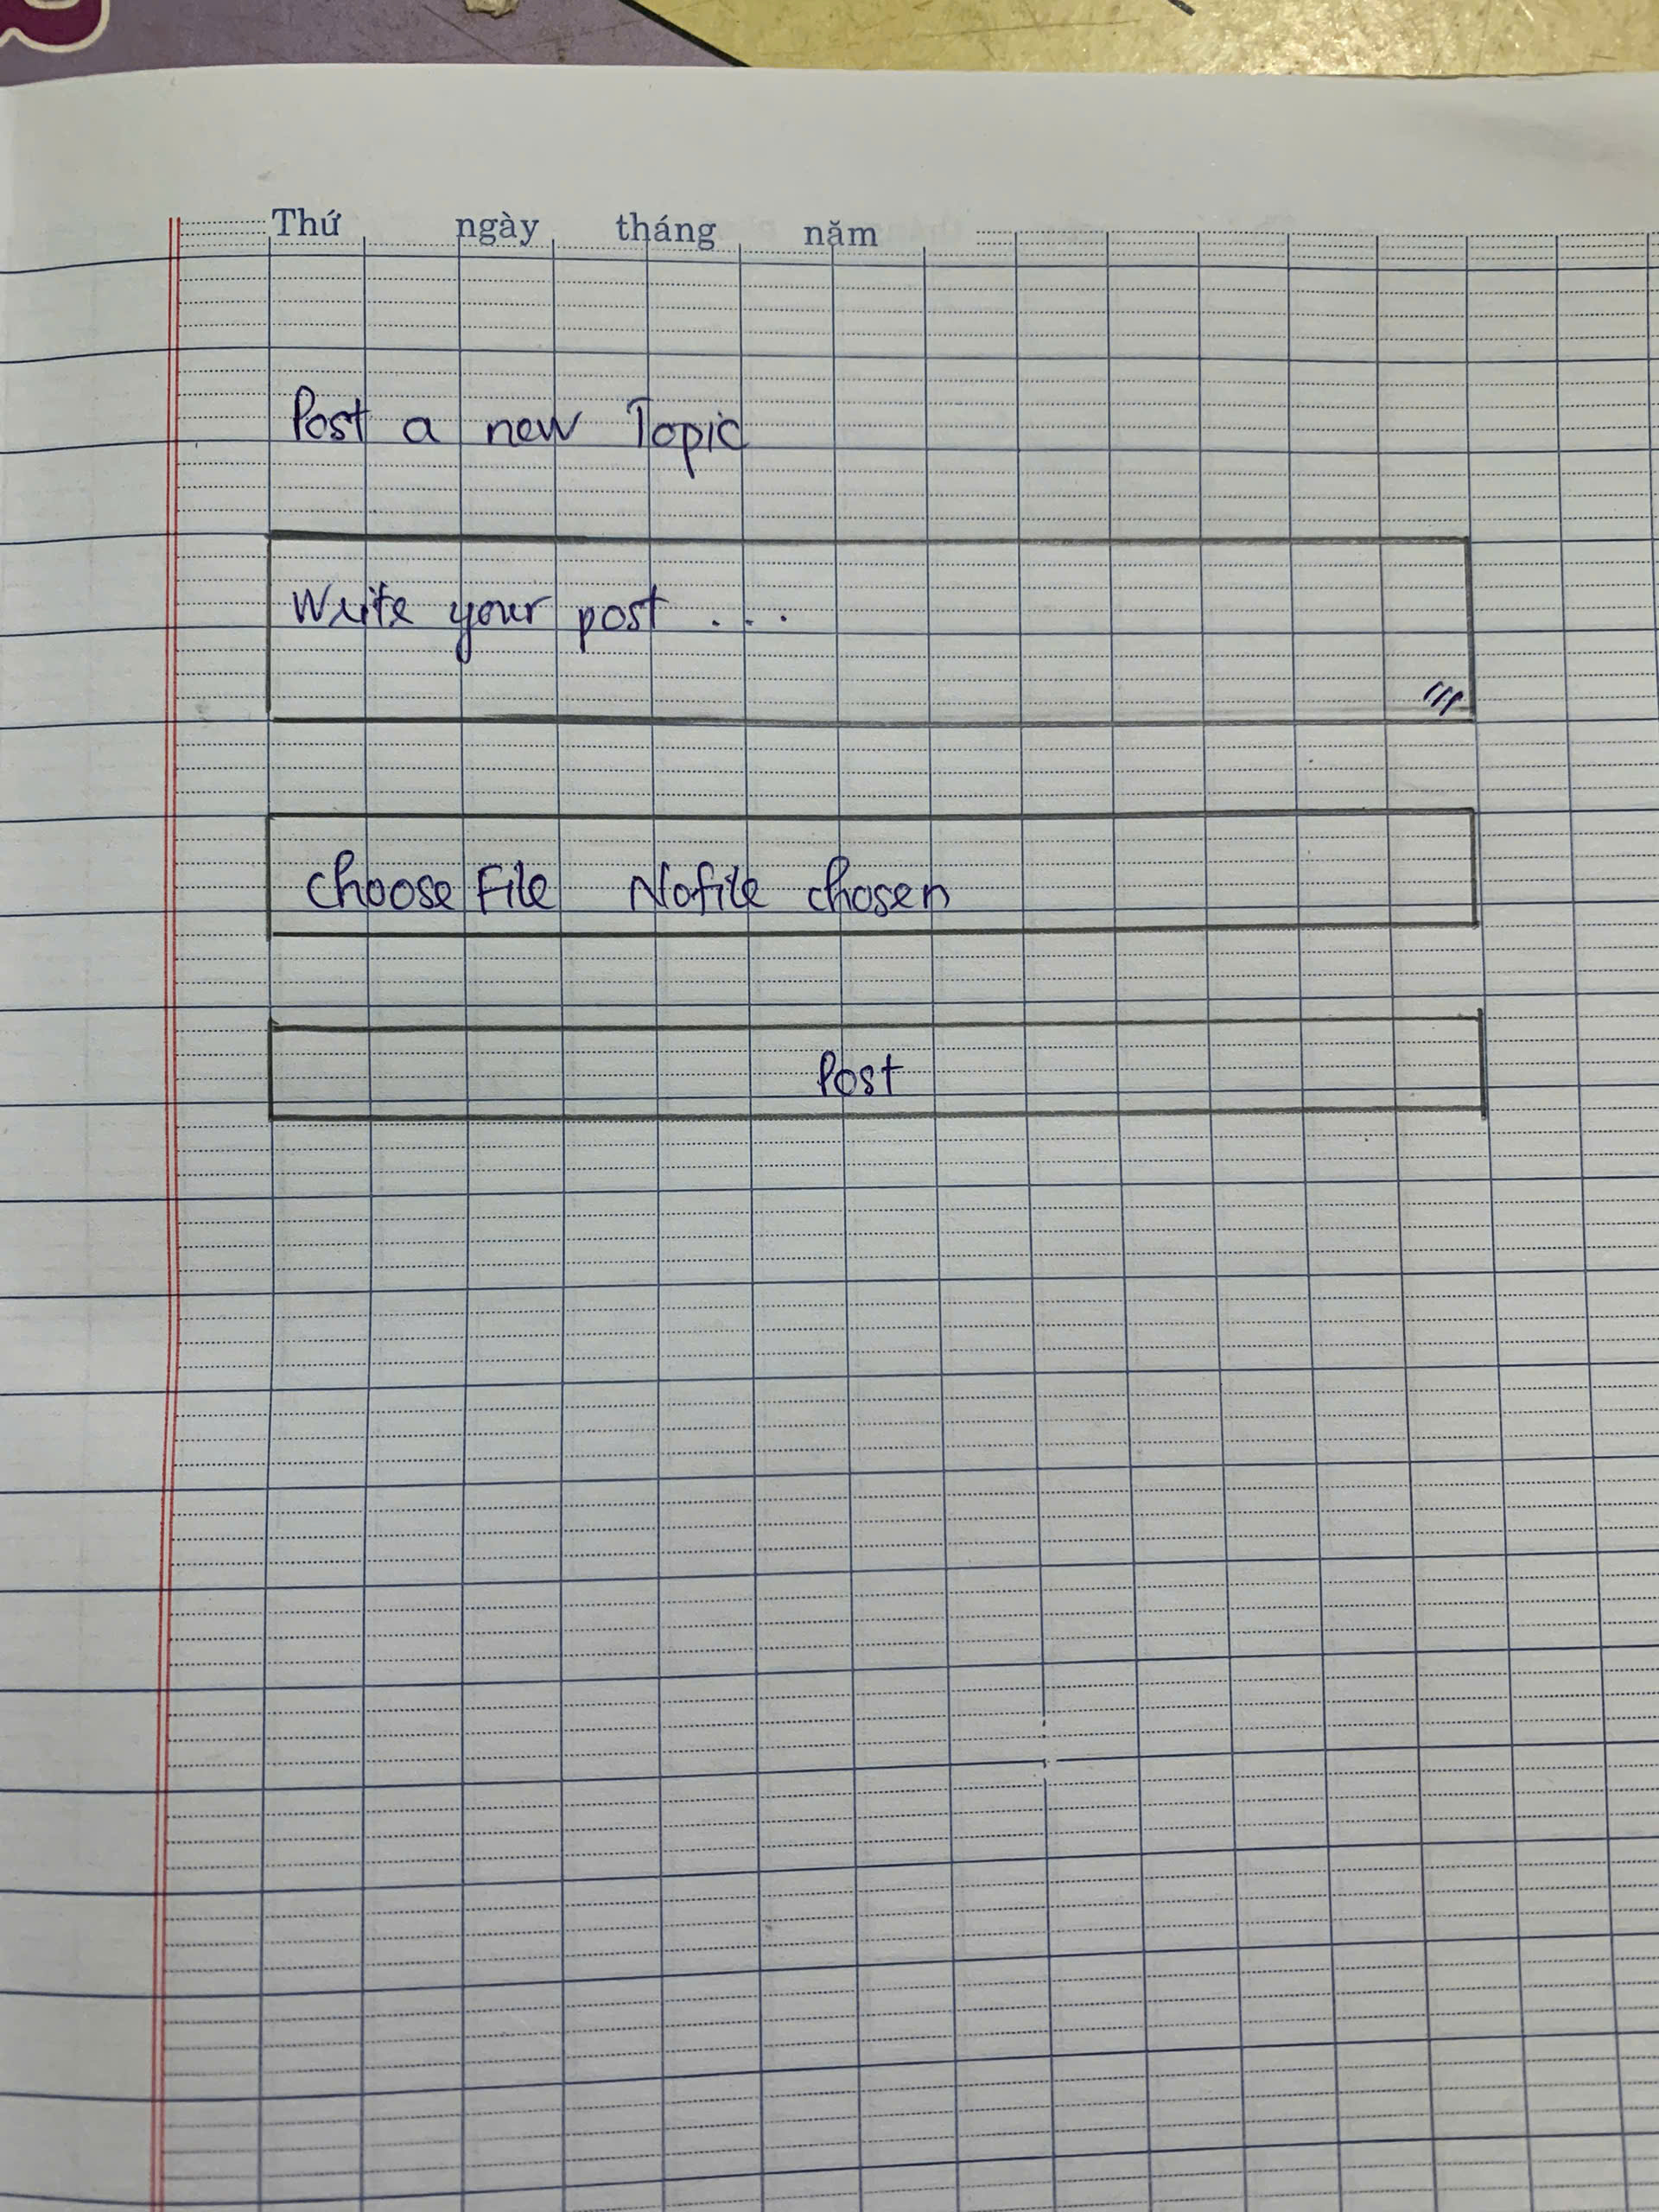 Thứ ngày tháng năm
Post a new Topic
Write your post ...
Choose File Nofile chosen
Post